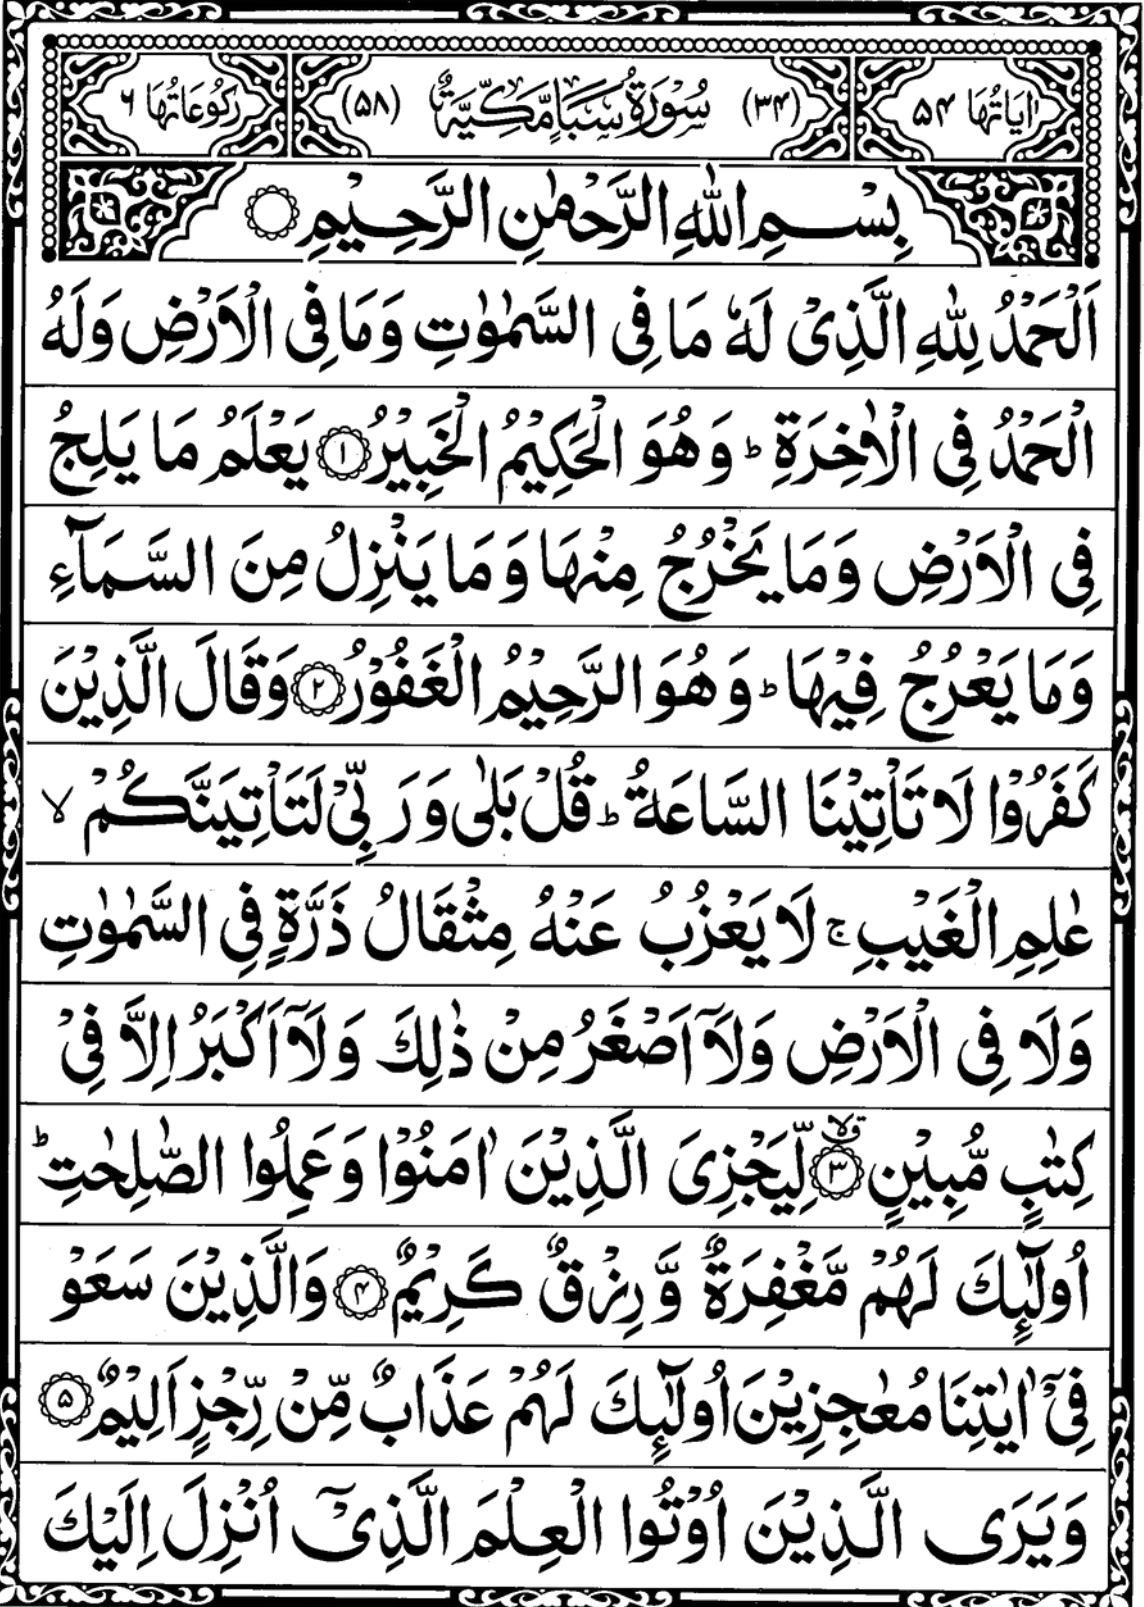 اٰيَاتُهَا ۵۴ (۳۴) سُوْرَةُ سَبَاٍ مَّكِّيَّةٌ (۵۸) رُكُوْعَاتُهَا ۶
بِسْمِ اللّٰهِ الرَّحْمٰنِ الرَّحِيْمِ ۝
اَلْحَمْدُ لِلّٰهِ الَّذِىْ لَهٗ مَا فِى السَّمٰوٰتِ وَمَا فِى الْاَرْضِ وَلَهُ
الْحَمْدُ فِى الْاٰخِرَةِ ؕ وَهُوَ الْحَكِيْمُ الْخَبِيْرُ ۝۱ يَعْلَمُ مَا يَلِجُ
فِى الْاَرْضِ وَمَا يَخْرُجُ مِنْهَا وَمَا يَنْزِلُ مِنَ السَّمَآءِ
وَمَا يَعْرُجُ فِيْهَا ؕ وَهُوَ الرَّحِيْمُ الْغَفُوْرُ ۝۲ وَقَالَ الَّذِيْنَ
كَفَرُوْا لَا تَاْتِيْنَا السَّاعَةُ ؕ قُلْ بَلٰى وَرَبِّىْ لَتَاْتِيَنَّكُمْ ۙ
عٰلِمِ الْغَيْبِ ۚ لَا يَعْزُبُ عَنْهُ مِثْقَالُ ذَرَّةٍ فِى السَّمٰوٰتِ
وَلَا فِى الْاَرْضِ وَلَآ اَصْغَرُ مِنْ ذٰلِكَ وَلَآ اَكْبَرُ اِلَّا فِىْ
كِتٰبٍ مُّبِيْنٍ ۝۳ ۙق لِّيَجْزِىَ الَّذِيْنَ اٰمَنُوْا وَعَمِلُوا الصّٰلِحٰتِ ؕ
اُولٰٓئِكَ لَهُمْ مَّغْفِرَةٌ وَّرِزْقٌ كَرِيْمٌ ۝۴ وَالَّذِيْنَ سَعَوْ
فِىْٓ اٰيٰتِنَا مُعٰجِزِيْنَ اُولٰٓئِكَ لَهُمْ عَذَابٌ مِّنْ رِّجْزٍ اَلِيْمٌ ۝۵
وَيَرَى الَّذِيْنَ اُوْتُوا الْعِلْمَ الَّذِىْٓ اُنْزِلَ اِلَيْكَ